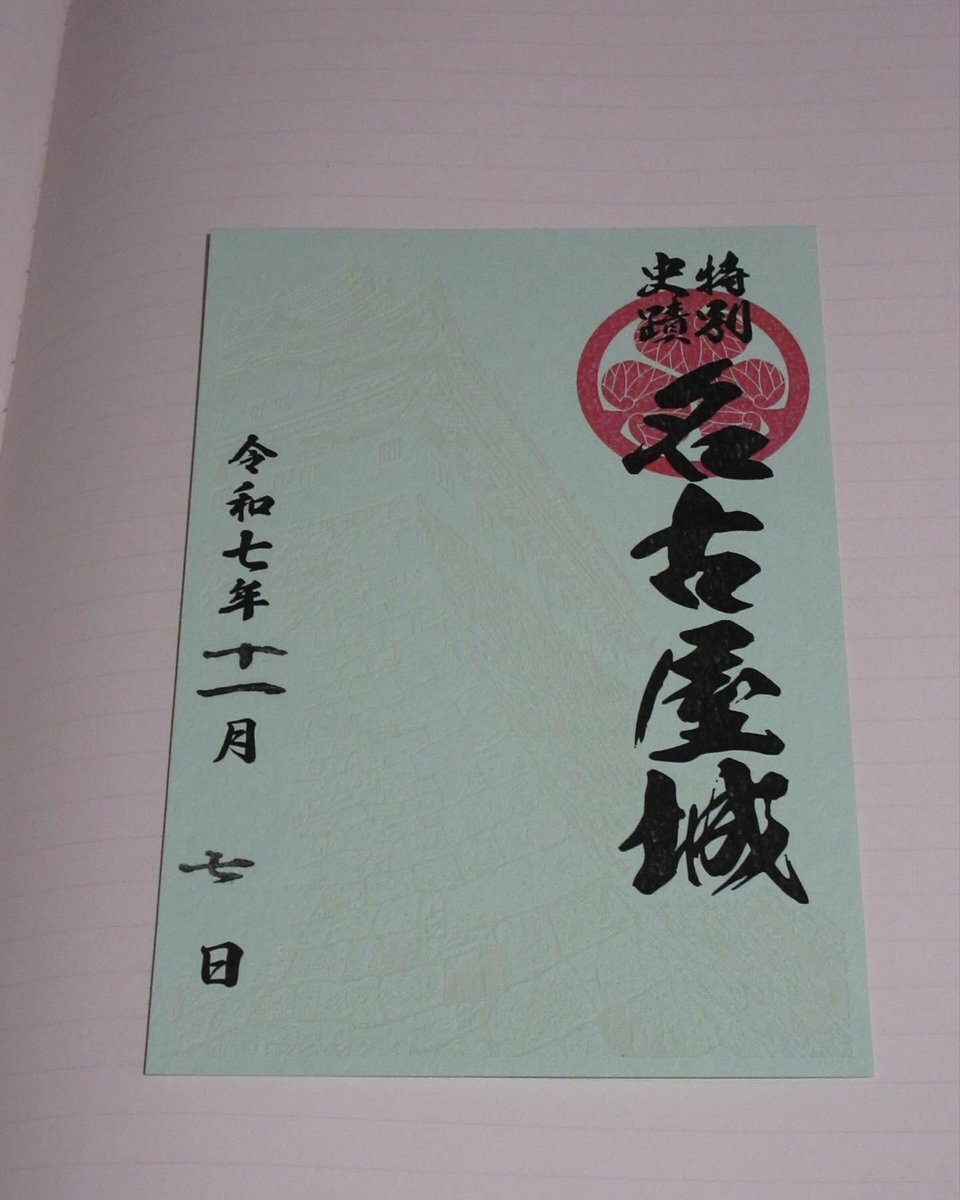 特別
史蹟
名古屋城
令和七年十一月 七日